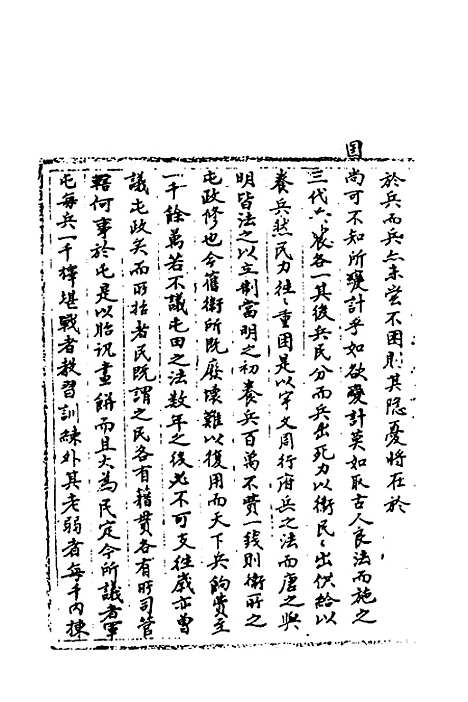 於兵而兵亦未嘗不困則其隱憂將在於
國
尚可不知所變計乎如欲變計莫如取古人良法而施之
三代六衰各一其後兵民分而兵出死力以衛民民出供給以
養兵然民力往往重困是以宇文周行府兵之法而唐之與
明皆法之以立制當明之初養兵百萬不費一錢則衛所之
屯政修也今舊衛所既廢壞難以復用而天下兵餉費至
一千餘萬若不議屯田之法數年之後必不可支往歲亦曾
議屯政矣而所括者民既謂之民各有籍貫各有所司管
轄何事於屯是以貽譏畫餅而且大為民定今所議者軍
屯每兵一千擇堪戰者教習訓練外其老弱者每千內揀